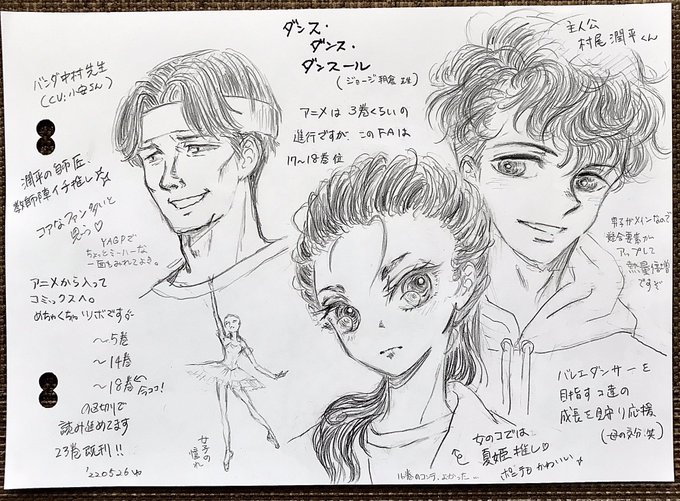 ダンス・
ダンス・
ダンスール
(ジョージ朝倉 先生)
主人公
村尾潤平くん
バンダ中村先生
(CV:小安さん)
アニメは 3巻くらいの
進行ですが このFAは
17〜18巻位
潤平の師匠、
教師陣イチ推し☆
コアなファン多いと
思う♡
YAGPで
ちょっとミーハーな
一面もみれてよき。
男子がメインなので
総合要素が
アップして
熱量倍増
ですぞ
アニメから入って
コミックスへ。
めちゃくちゃリボです
〜5巻
〜14巻
〜18巻 ←今ココ!
の区切りで
読み進めてます
23巻既刊!!
'220526
女子の
憧れ
バレエダンサーを
目指すコ達の
成長を見守り応援
(母の気分.笑)
女のコでは
夏姫推し♡
ポニテもかわいい
16巻のコンテ、よかった…